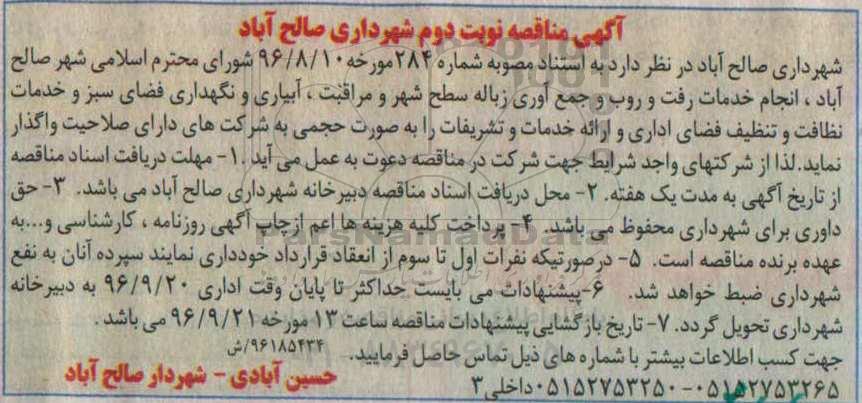 آگهی مناقصه نوبت دوم شهرداری صالح آباد
شهرداری صالح آباد در نظر دارد به استناد مصوبه شماره ۲۸۴ مورخه ۹۶/۸/۱۰ شورای محترم اسلامی شهر صالح
آباد ، انجام خدمات رفت و روب و جمع آوری زباله سطح شهر و مراقبت ، آبیاری و نگهداری فضای سبز و خدمات
نظافت و تنظیف فضای اداری و ارائه خدمات و تشریفات را به صورت حجمی به شرکت های دارای صلاحیت واگذار
نماید.لذا از شرکتهای واجد شرایط جهت شرکت در مناقصه دعوت به عمل می آید .۱- مهلت دریافت اسناد مناقصه
از تاریخ آگهی به مدت یک هفته. ۲- محل دریافت اسناد مناقصه دبیرخانه شهرداری صالح آباد می باشد. ۳- حق
داوری برای شهرداری محفوظ می باشد. ۴- پرداخت کلیه هزینه ها اعم ازچاپ آگهی روزنامه ، کارشناسی و...به
عهده برنده مناقصه است. ۵- درصورتیکه نفرات اول تا سوم از انعقاد قرارداد خودداری نمایند سپرده آنان به نفع
شهرداری ضبط خواهد شد. ۶-پیشنهادات می بایست حداکثر تا پایان وقت اداری ۹۶/۹/۲۰ به دبیرخانه
شهرداری تحویل گردد. ۷- تاریخ بازگشایی پیشنهادات مناقصه ساعت ۱۳ مورخه ۹۶/۹/۲۱ می باشد .
جهت کسب اطلاعات بیشتر با شماره های ذیل تماس حاصل فرمایید. ۹۶۱۸۵۴۳۴/ش
۰۵۱۵۲۷۵۳۲۶۵-۰۵۱۵۲۷۵۳۲۵۰داخلی۳
حسین آبادی - شهردار صالح آباد
ParsNamadData